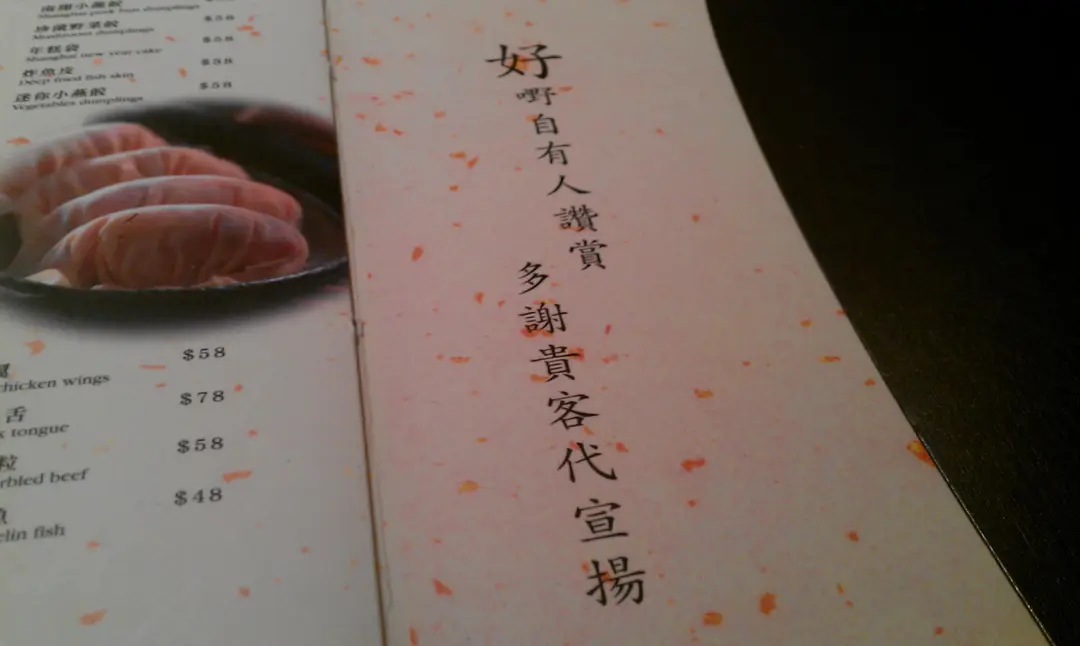 Shanghai pork bun dumplings
Mushroom dumplings
$58
年糕袋
Shanghai new year cake
$58
炸魚皮
Deep fried fish skin
$38
迷你小蔬餃
Vegetables dumplings
$58
chicken wings
$58
舌
tongue
$78
粒
beef
$58
魚
fish
$48
好嘢自有人讚賞
多謝貴客代宣揚